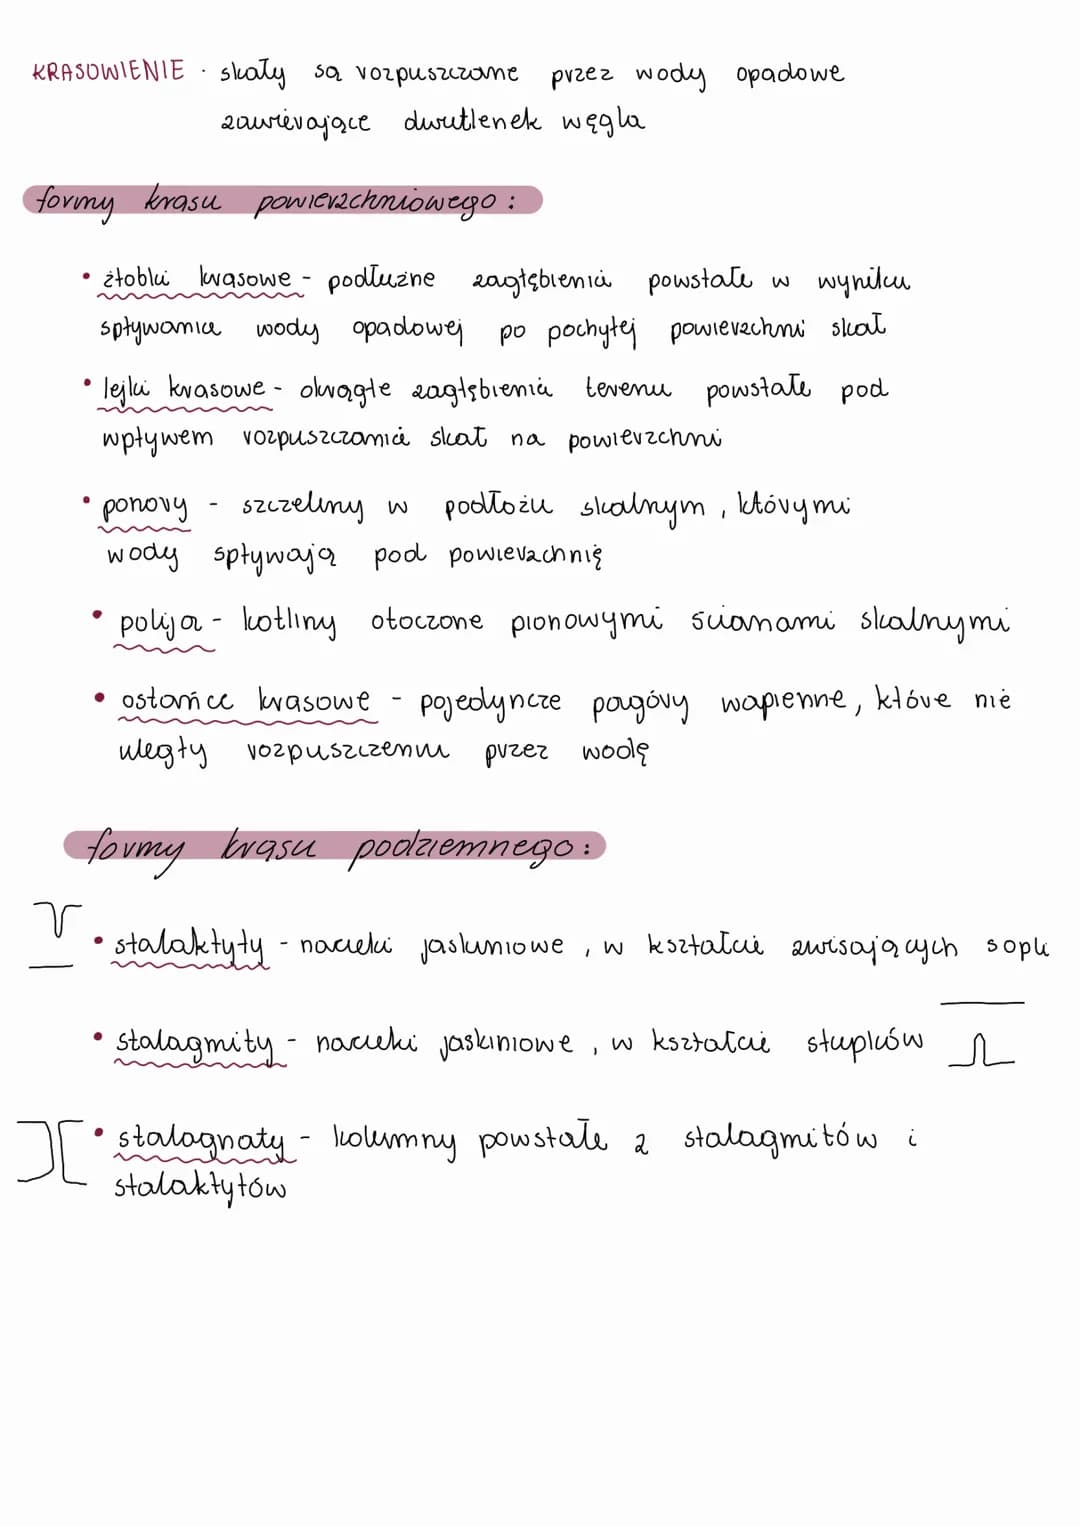 KRASOWIENIE · skały są rozpuszczane przez wody opadowe
zawierające dwutlenek węgla
formy krasu powierzchniowego :
• żłobki krasowe - podłużne zagłębienia powstałe w wyniku
spływania wody opadowej po pochyłej powierzchni skał
• lejki krasowe - okrągłe zagłębienia terenu powstałe pod
wpływem rozpuszczania skał na powierzchni
• ponory - szczeliny w podłożu skalnym, którymi
wody spływają pod powierzchnię
• polija - kotliny otoczone pionowymi ścianami skalnymi
• ostańce krasowe - pojedyncze pagóry wapienne, które nie
uległy rozpuszczeniu przez wodę
formy krasu podziemnego :
• stalaktyty - nacieki jaskiniowe, w kształcie zwisających sopli
• stalagmity - nacieki jaskiniowe, w kształcie słupków
• stalagnaty - kolumny powstałe z stalagmitów i
stalaktytów